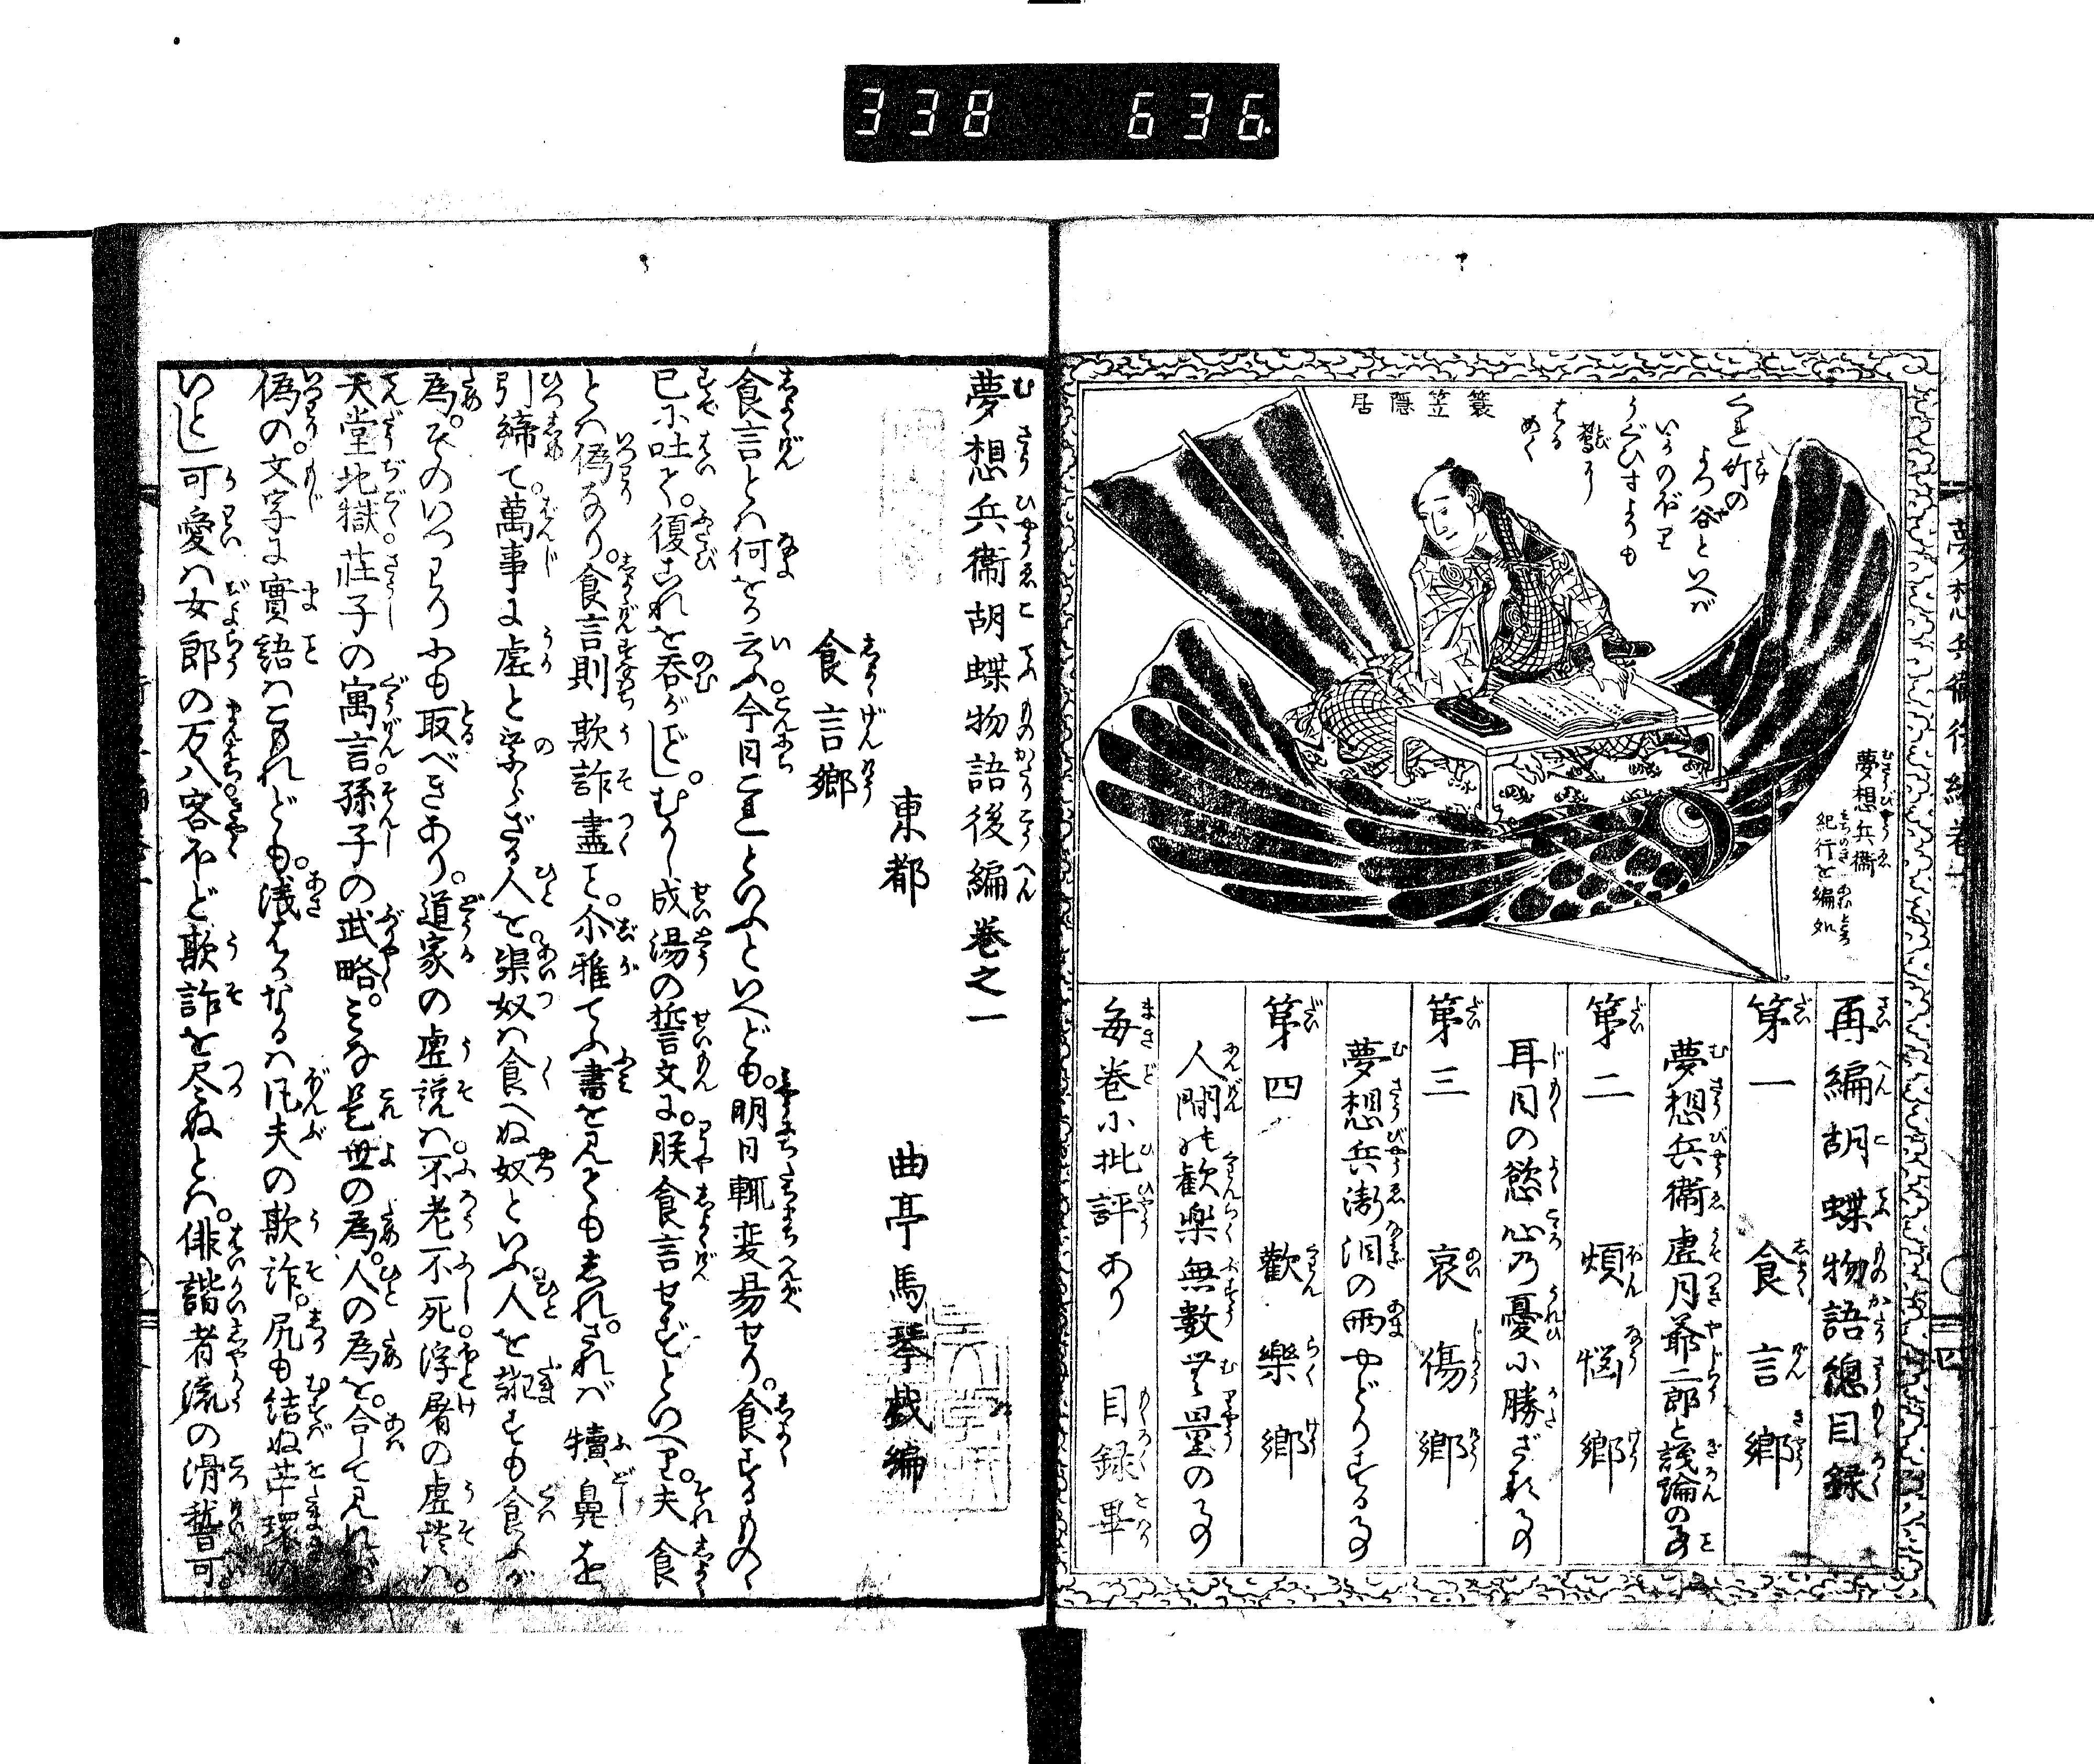 338 636
簑笠隠居
くれ竹の
よつ谷といへば
いかのぼり
うぐひすよりも
鳶ぞ
はる
めく
夢想兵衛
紀行を編処
再編胡蝶物語總目録
第一 食言郷
夢想兵衛虚月爺二郎と議論の事
第二 煩悩郷
耳目の慾心乃憂に勝ざる事
第三 哀傷郷
夢想兵衛泪の雨やどりする事
第四 歓樂郷
人間の歓樂無數無量の事
毎巻に批評あり 目録畢
夢想兵衛胡蝶物語後編巻之一
東都 曲亭馬琴戯編
食言郷
食言とは何をか云ふ。今日これといふといへども。明日輒変易せり。食するものゝ
已に吐て。復これを呑がごとし。むかし成湯の誓文に。朕食言せずといへり。夫食
とは偽なり。食言則欺詐盡と。尓雅てふ書を見ても志れ。されば犢鼻を
引締て。萬事に虚と学ざる人を。渠奴は食へぬ奴といふ。人を誑すも食ふが
為。そのいつはりにも取べきあり。道家の虚説は。不老不死。浮屠の虚談は。
天堂地獄。荘子の寓言孫子の武略。みな是世の為。人の為を。合して見れば
偽の。文字に實語はこもれども。浅はかなるは凡夫の欺詐。尻も結ぬ苧環の
いとし可愛は女郎の万八客ほど欺詐を尽ぬとは。俳諧者流の滑稽可